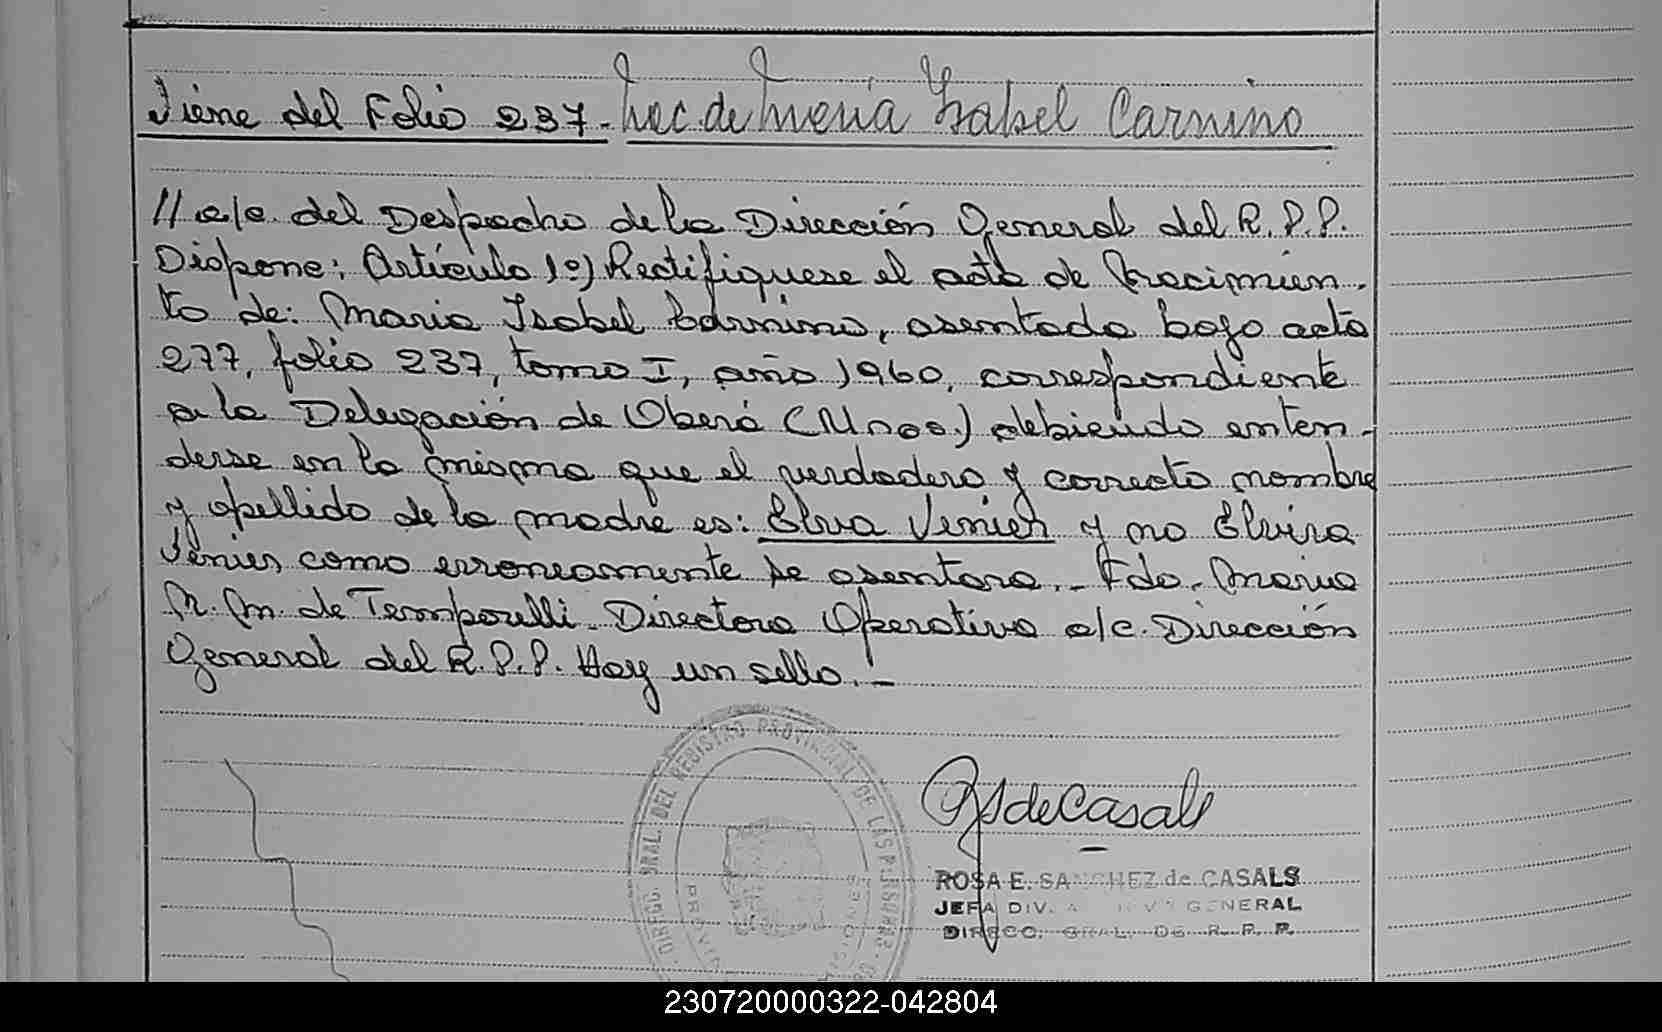 Viene del Folio 237.- Nac. de María Isabel Carnino
// a/c. del Despacho de la Dirección General del R.P.P.
Dispone: Artículo 1º) Rectifiquese el acta de Nacimien-
to de: Maria Isabel Carnino, asentada bajo acta
277, folio 237, tomo I, año 1960, correspondiente
a la Delegación de Oberá (Mnes.) debiendo enten-
derse en la misma que el verdadero y correcto nombre
y apellido de la madre es: Elva Venier y no Elvira
Venier como erroneamente se asentara.- Fdo. Maria
N. M. de Temporelli - Directora Operativa a/c. Dirección
General del R.P.P. Hay un sello.-
DIREC. GRAL. DEL REGISTRO PROVINCIAL DE LAS PERSONAS
RSdeCasals
ROSA E. SANCHEZ de CASALS
JEFA DIV. GENERAL
DIRECC. GRAL. DE R. P. P.
230720000322-042804